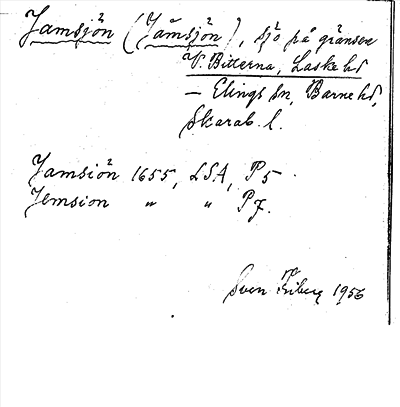 Jamsjön (Jämsjön), sjö på gränsen
V. Bitterna, Laske hd
— Elings sn, Barne hd,
Skarab. l.
Jamsiön 1655, LSA, P5.
Jemsion " " P7.
Sven Friberg 1956